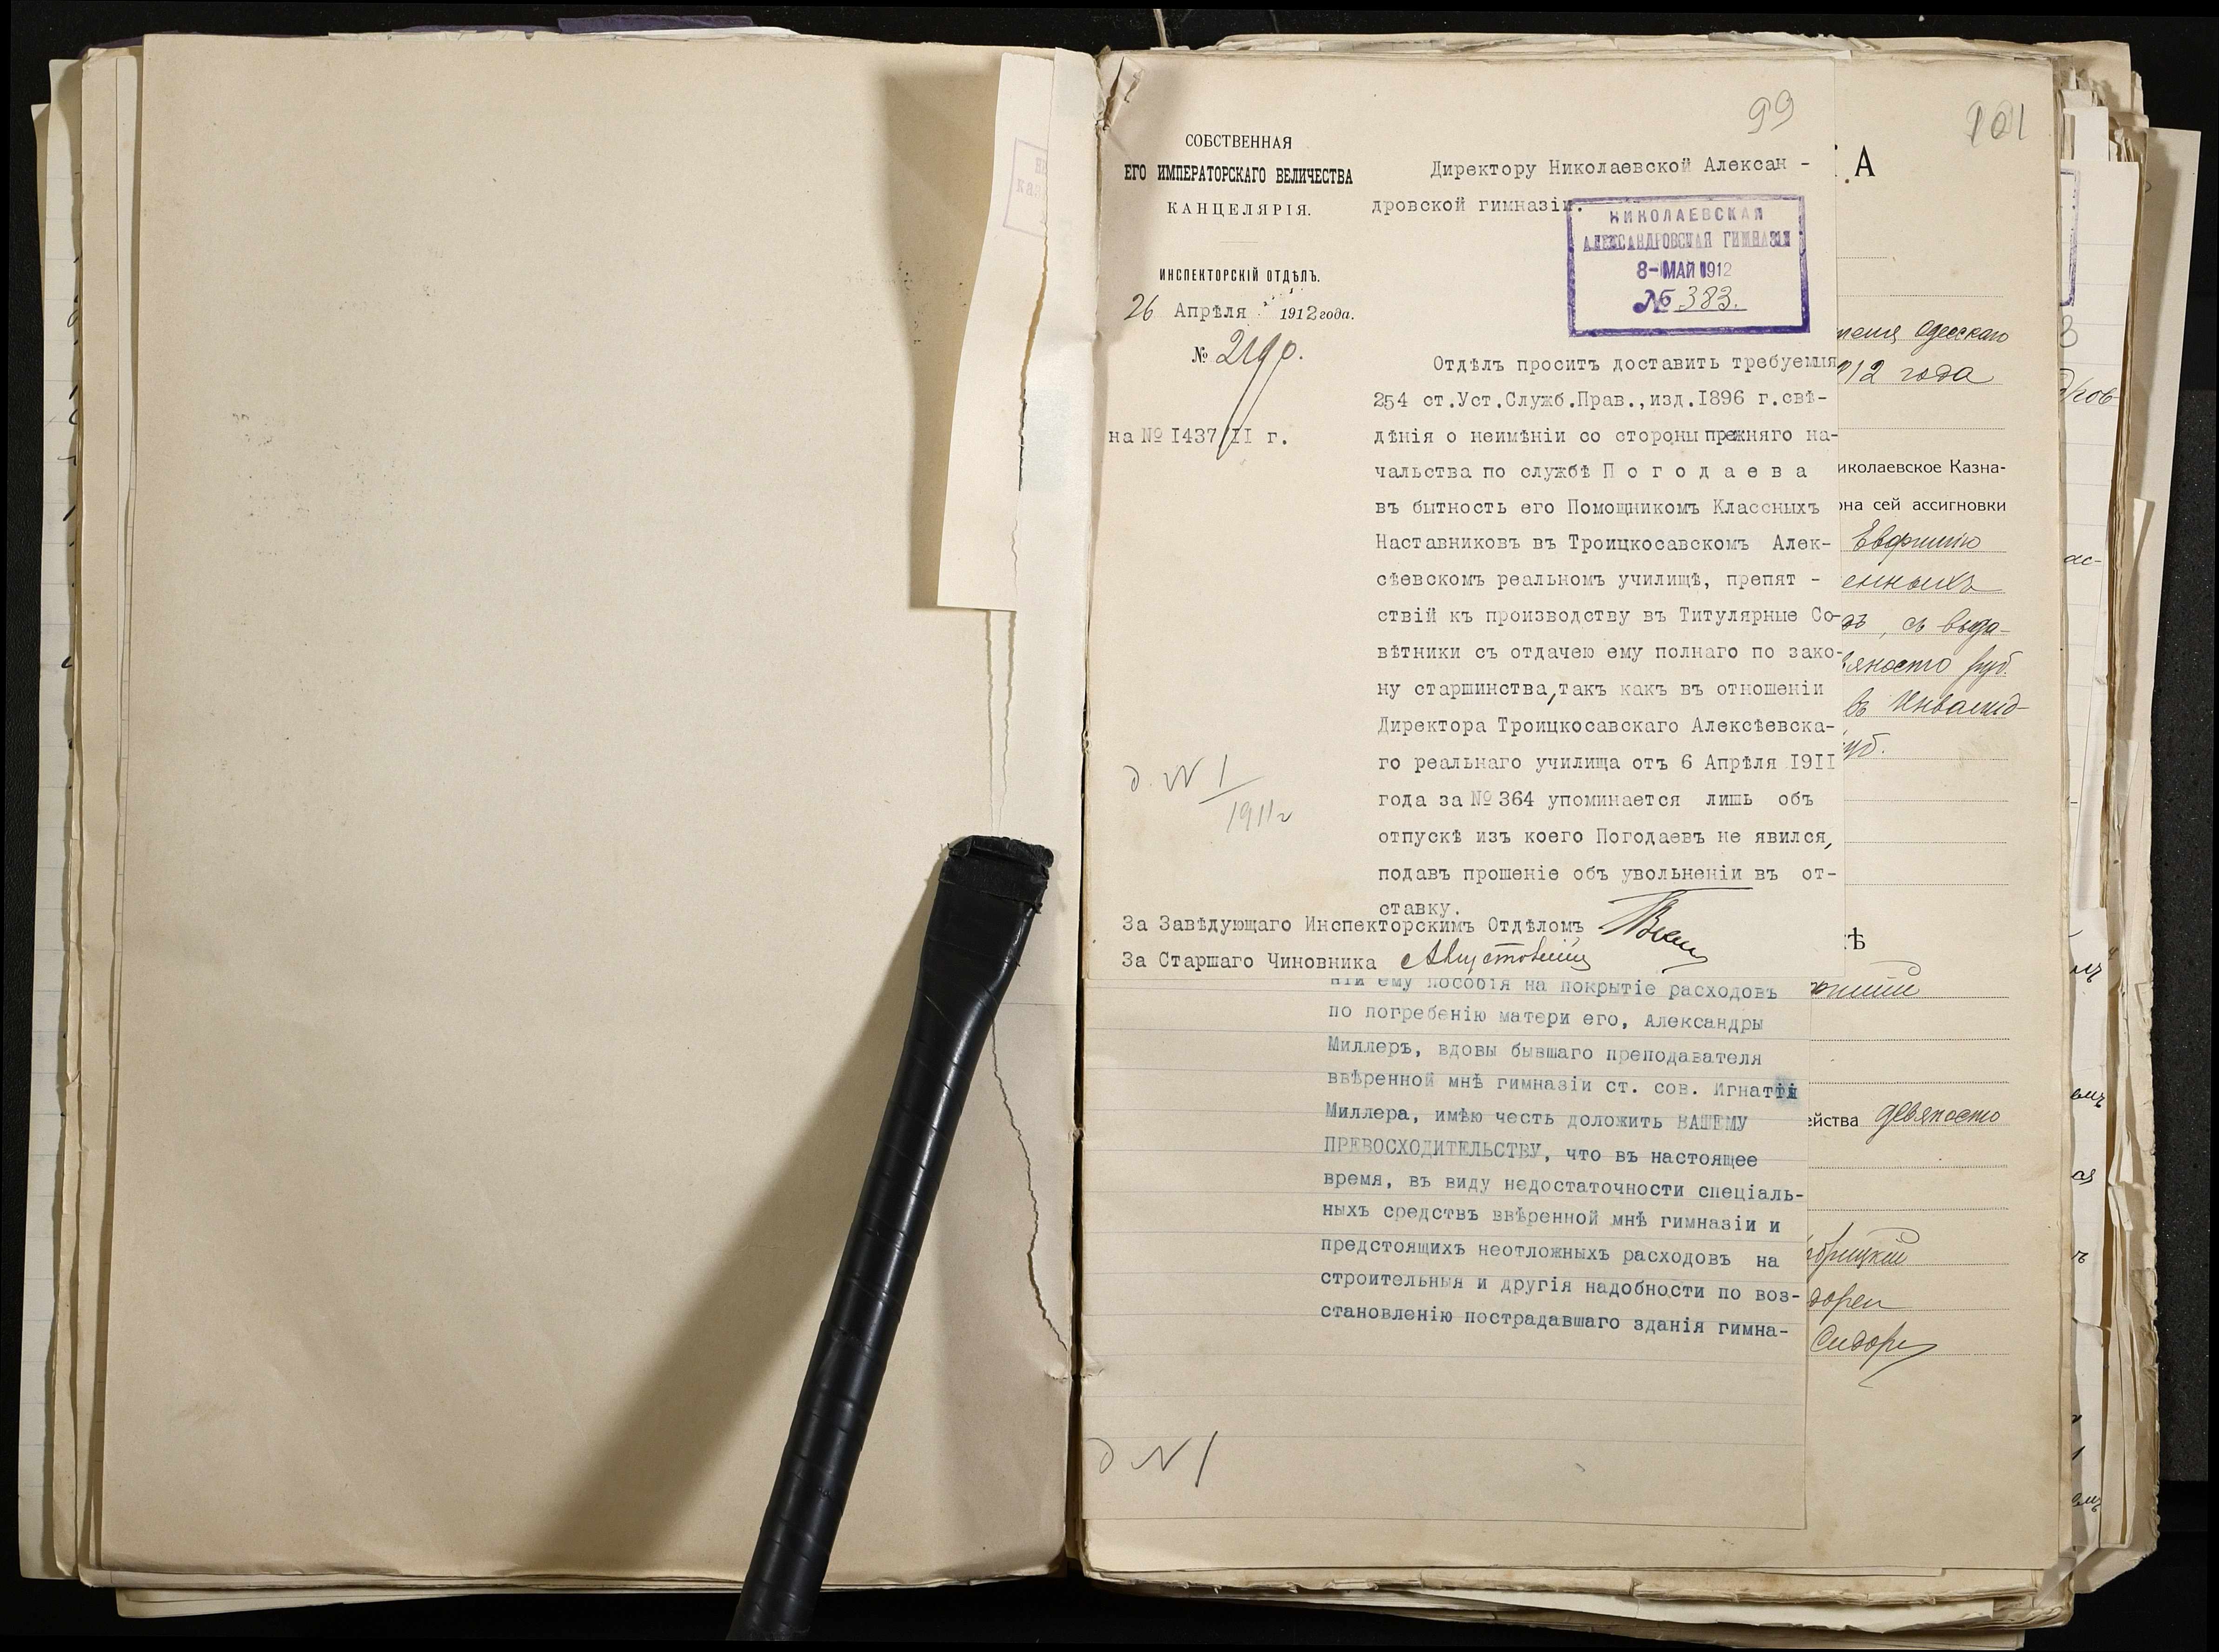 99
СОБСТВЕННАЯ
ЕГО ИМПЕРАТОРСКАГО ВЕЛИЧЕСТВА
КАНЦЕЛЯРІЯ.
ИНСПЕКТОРСКІЙ ОТДѢЛЪ.
26 Апрѣля 1912 года.
№
на № I437/II г.
д. N 1
1911 г
Директору Николаевской Алексан -
дровской гимназіи.
НИКОЛАЕВСКАЯ
АЛЕКСАНДРОВСКАЯ ГИМНАЗІЯ
8-МАЙ 1912
№ 383.
Отдѣлъ проситъ доставить требуемыя
254 ст.Уст.Служб.Прав.,изд.I896 г.свѣ-
дѣнія о неимѣніи со стороны прежняго на-
чальства по службѣ П о г о д а е в а
въ бытность его Помощникомъ Классныхъ
Наставниковъ въ Троицкосавскомъ Алек-
сѣевскомъ реальномъ училищѣ, препят -
ствій къ производству въ Титулярные Со-
вѣтники съ отдачею ему полнаго по зако-
ну старшинства,такъ какъ въ отношеніи
Директора Троицкосавскаго Алексѣевска-
го реальнаго училища отъ 6 Апрѣля I9II
года за № 364 упоминается лишь объ
отпускѣ изъ коего Погодаевъ не явился,
подавъ прошеніе объ увольненіи въ от-
ставку.
За Завѣдующаго Инспекторскимъ Отдѣломъ
За Старшаго Чиновника
ніи ему пособія на покрытіе расходовъ
по погребенію матери его, Александры
Миллеръ, вдовы бывшаго преподавателя
ввѣренной мнѣ гимназіи ст. сов. Игнатія
Миллера, имѣю честь доложить ВАШЕМУ
ПРЕВОСХОДИТЕЛЬСТВУ, что въ настоящее
время, въ виду недостаточности спеціаль-
ныхъ средствъ ввѣренной мнѣ гимназіи и
предстоящихъ неотложныхъ расходовъ на
строительныя и другія надобности по воз-
становленію пострадавшаго зданія гимна-
д N 1
101
А
Одесскаго
912 года
иколаевское Казна-
она сей ассигновки
Евфимію
енныхъ
, съ выда-
вяносто руб.
въ Инвалид-
руб.
ѣ
ейства девяносто